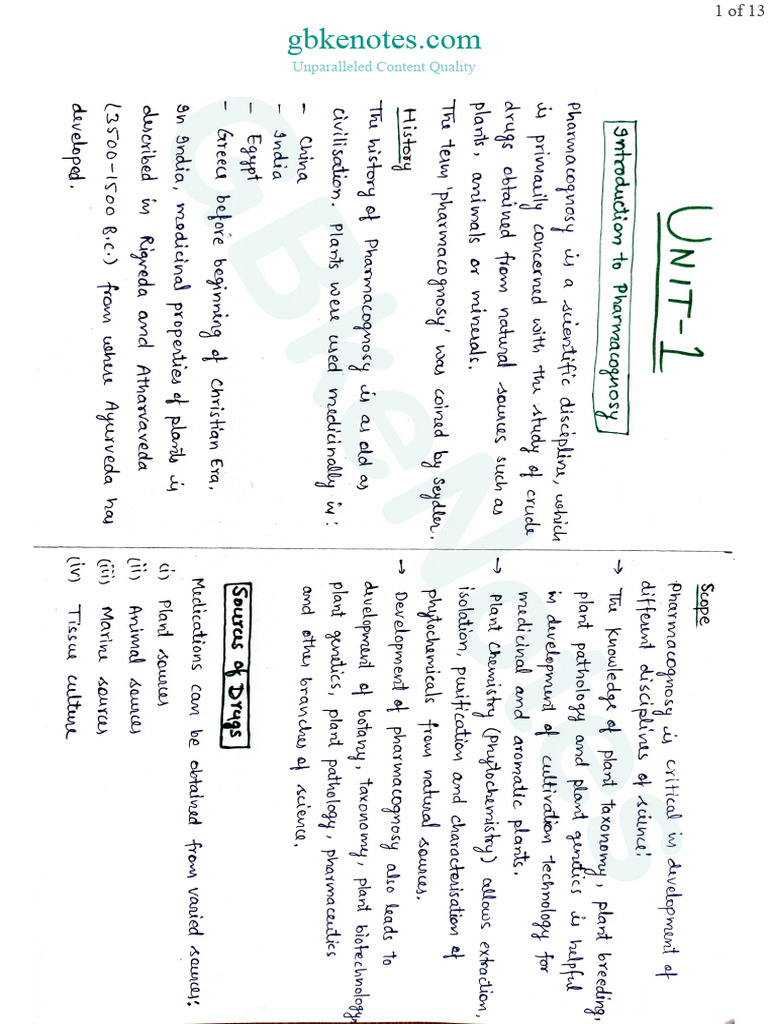 1 of 13
gbkenotes.com
Unparalleled Content Quality
UNIT-1
Introduction to Pharmacognosy
Pharmacognosy is a scientific discipline, which
is primarily concerned with the study of crude
drugs obtained from natural sources such as
plants, animals or minerals.
The term 'pharmacognosy' was coined by Seydler.
History
The history of Pharmacognosy is as old as
civilisation. Plants were used medicinally in:
- China
- India
- Egypt
- Greece before beginning of Christian Era.
In India, medicinal properties of plants is
described in Rigveda and Atharvaveda
(3500-1500 B.C.) from where Ayurveda has
developed.
Scope
Pharmacognosy is critical in development of
different disciplines of science:
→ The knowledge of plant taxonomy, plant breeding,
plant pathology and plant genetics is helpful
in development of cultivation technology for
medicinal and aromatic plants.
→ Plant chemistry (phytochemistry) allows extraction,
isolation, purification and characterisation of
phytochemicals from natural sources.
→ Development of pharmacognosy also leads to
development of botany, taxonomy, plant biotechnology,
plant genetics, plant pathology, pharmaceutics
and other branches of science.
Sources of Drugs
Medications can be obtained from varied sources:
(i) Plant sources
(ii) Animal sources
(iii) Marine sources
(iv) Tissue culture
GBkeNotes